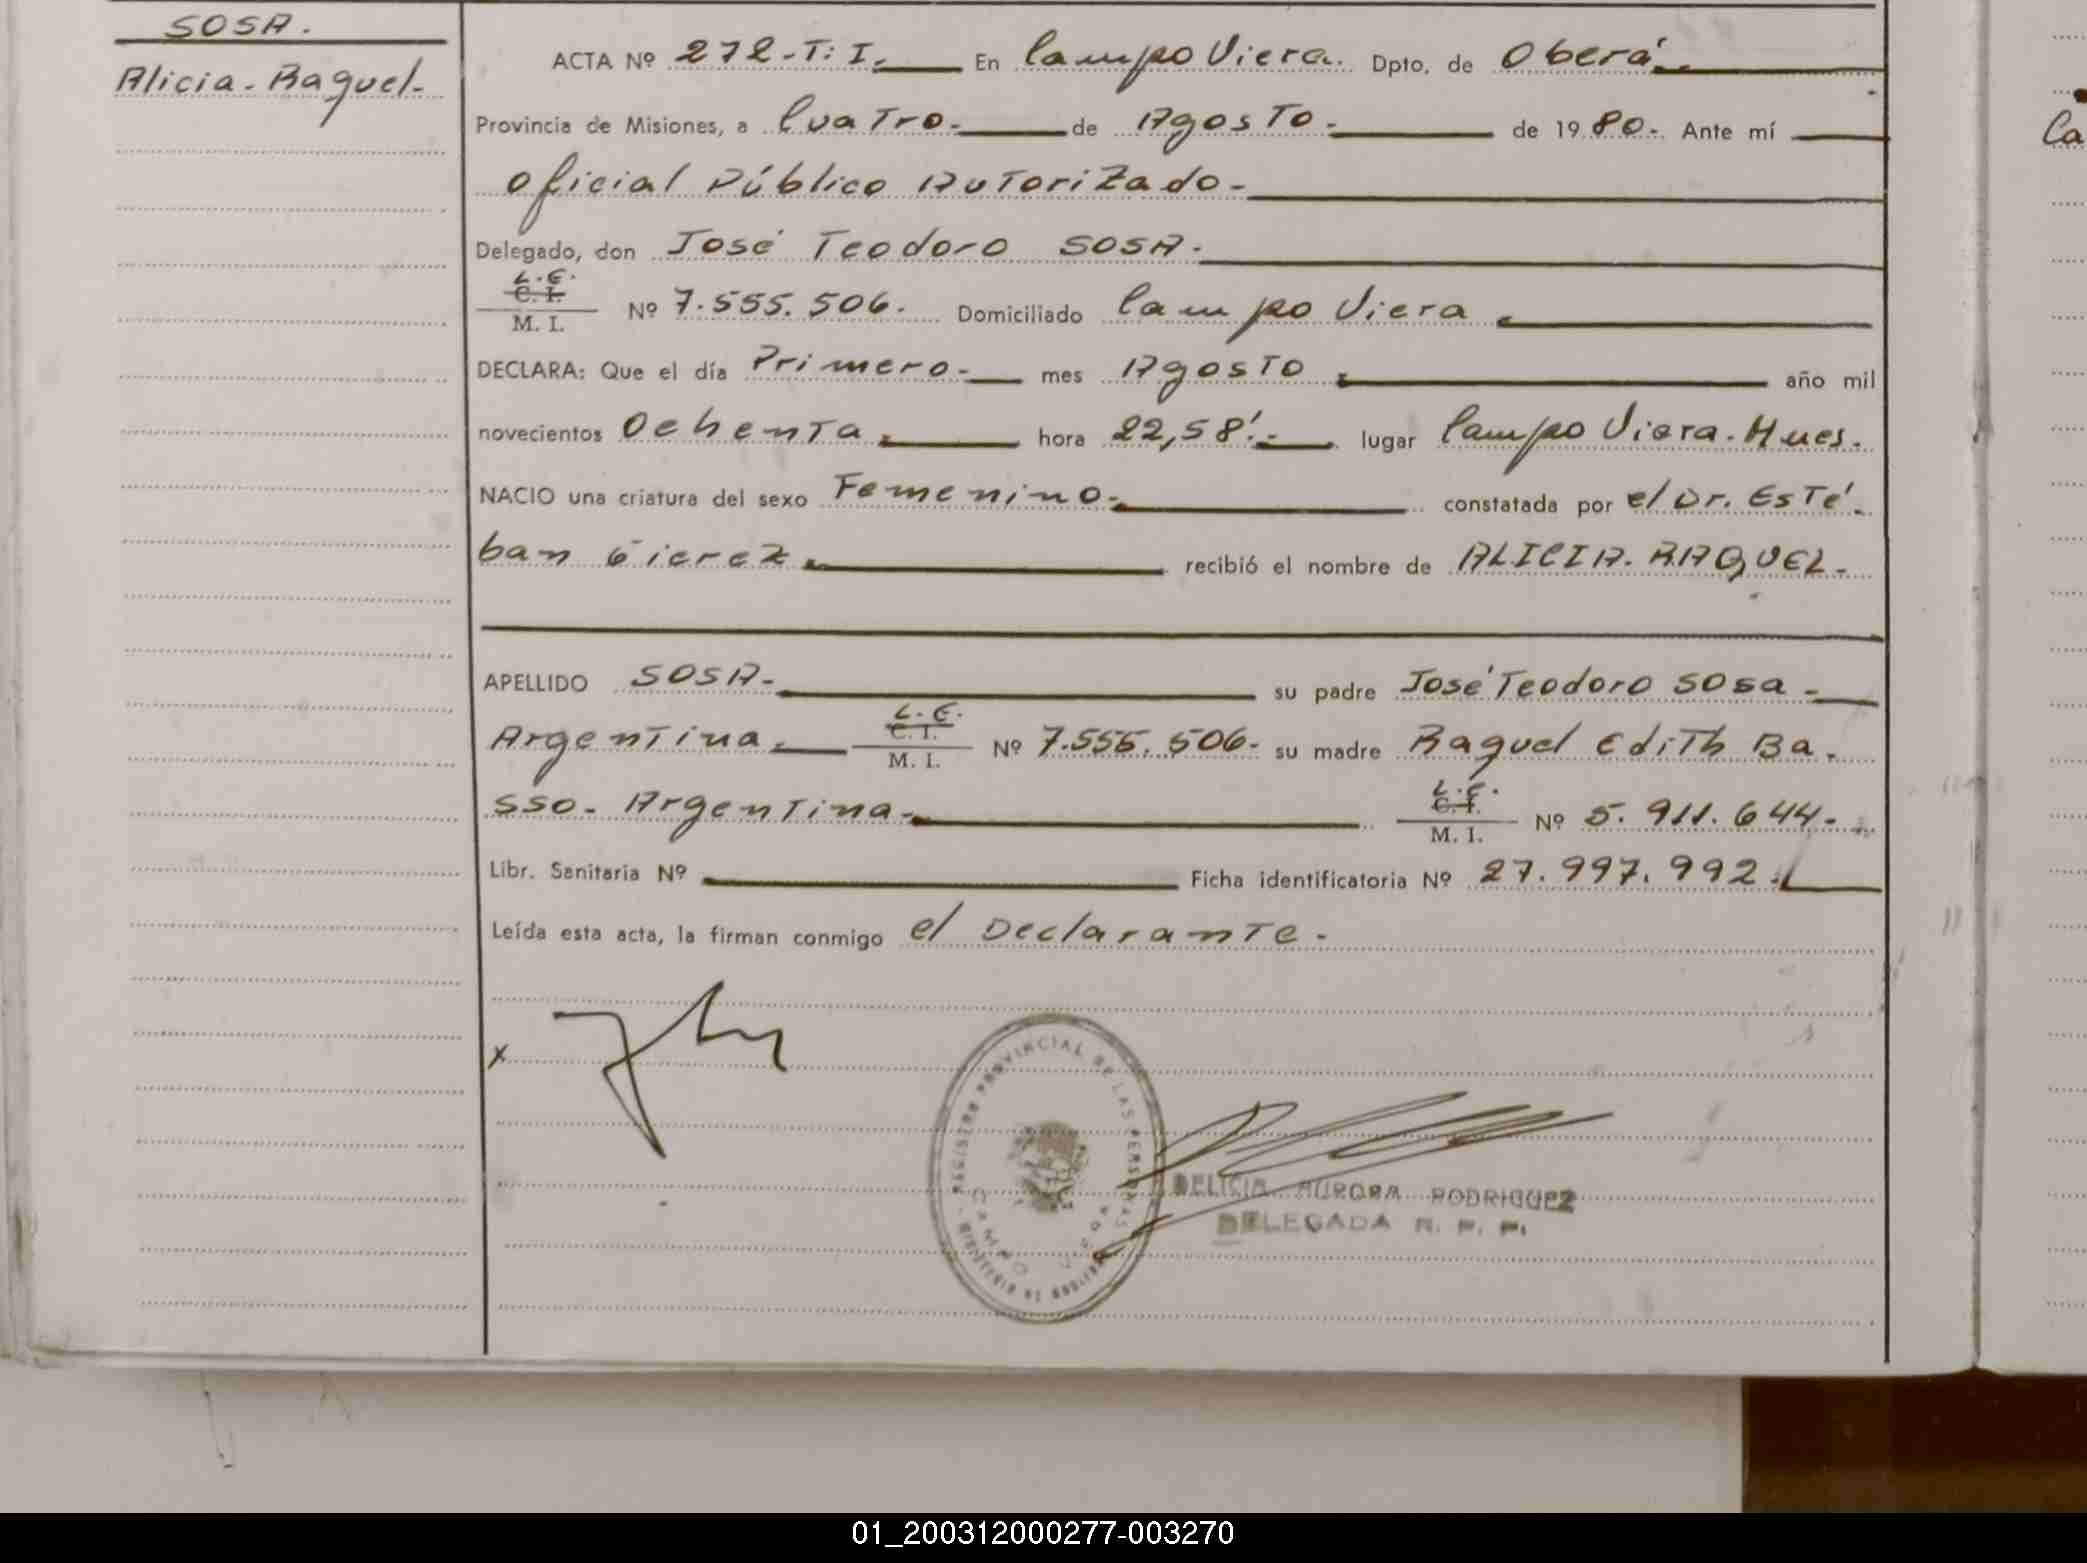 SOSA.
Alicia-Raquel-
ACTA Nº 272-T: I. En Campo Viera. Dpto. de Oberá.
Provincia de Misiones, a Cuatro- de Agosto- de 1980- Ante mí
Oficial Público Autorizado-
Delegado, don José Teodoro SOSA-
L.E.
C. I.
M. I.
Nº 7.555.506. Domiciliado Campo Viera
DECLARA: Que el día Primero- mes Agosto año mil
novecientos Ochenta hora 22,58'- lugar Campo Viera. Mnes.
NACIO una criatura del sexo Femenino- constatada por el Dr. Esté-
ban Gierez recibió el nombre de ALICIA. RAQUEL-
APELLIDO SOSA- su padre José Teodoro Sosa-
L.E.
C. I.
Argentina. M. I. Nº 7.555.506- su madre Raquel Edith Ba-
L.E.
C. I.
sso- Argentina- M. I. Nº 5.911.644-
Libr. Sanitaria Nº Ficha identificatoria Nº 27.997.992.
Leída esta acta, la firman conmigo el Declarante-
x
REGISTRO PROVINCIAL DE LAS PERSONAS
CAMPO
DELICIA AURORA RODRIGUEZ
DELEGADA R. P. P.
Ca
01_200312000277-003270